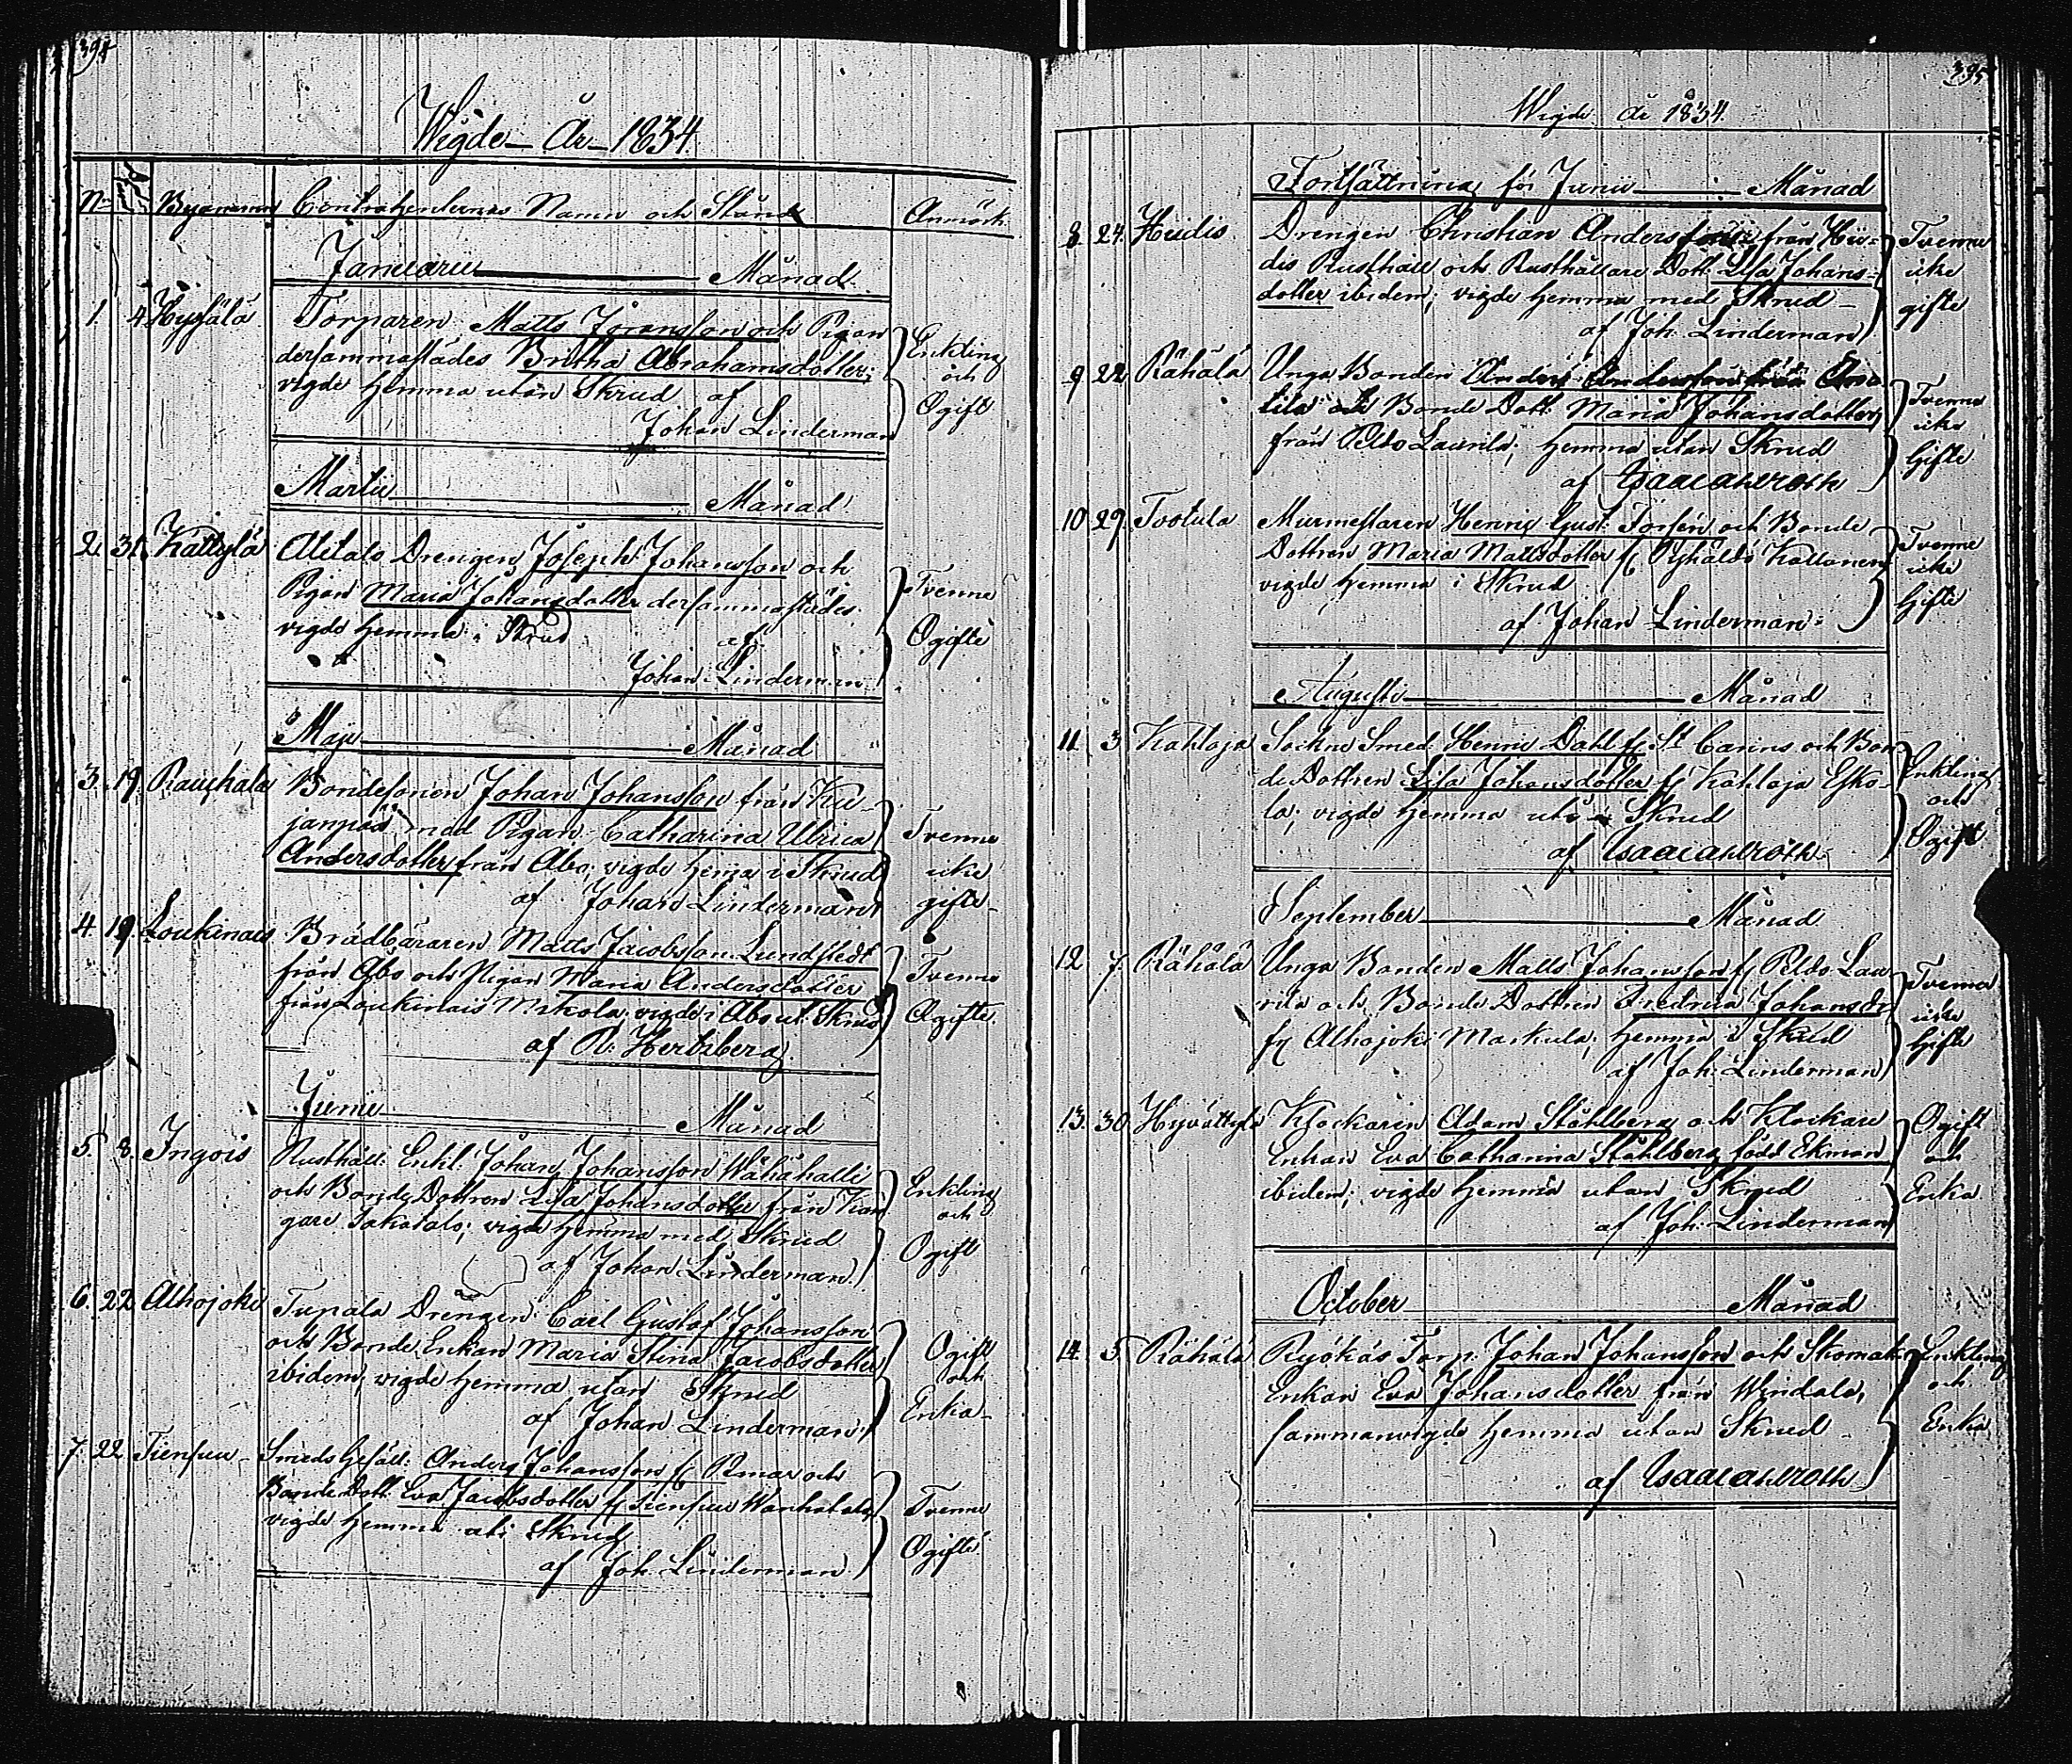 394
Wigde År 1834.
No Byanamn Contrahenternes Namn och Stånd Anmärk.
Januarii Månad
1. 4. Torparen Matts Göransson och Pigan Enkling
dersammastädes Britha Abrahamsdotter; och
vigde hemma utan Skrud af Ogift
Johan Linderman
Martii Månad
2. 31. Kättylä Alitalo Drengen Joseph Johansson och
Pigan Maria Johansdotter dersammastädes. Tvenne
vigde hemma i Skrud af Ogifte
Johan Linderman
Maji Månad
3. 19. Rauhala Bondesonen Johan Johansson från Ku-
janpää med Pigan Catharina Ulrica Tvenne
Andersdotter från Åbo; vigde hemma i Skrud icke
af Johan Linderman gifte
4. 19. Loukinais Brädbäraren Matts Jacobsson Lundstedt
från Åbo och Pigan Maria Andersdotter Tvenne
från Loukinais Mikola; vigde i Åbo ut. Skrud Ogifte.
af R. Hertzberg
Junii Månad
5. 8. Ingois Rusthåll: Enkl: Johan Johansson Wähähalli
och Bonde Dottren Lisa Johansdotter från Kan- Enkling
gare Jakotalo; vigde hemma med Skrud och
af Johan Linderman. Ogift
6. 22. Alhojoki Tupala Drengen Carl Gustaf Johansson
och Bonde Enkan Maria Stina Jacobsdotter Ogift
ibidem; vigde hemma utan Skrud och
af Johan Linderman. Enka
7. 22. Tiensuu Smeds Gesäll: Anders Johansson f Pmar och
Bonde Dott. Eva Jacobsdotter f Tiensuu Wanhatalo, Tvenne
vigde hemma uti Skrud Ogifte
af Joh. Linderman
395
Wigde År 1834.
Fortsättning för Junii Månad
8. 24. Heidis Drengen Christian Andersson från Hei- Tvenne
dis Rusthåll och Rusthållare Dott. Lisa Johans- icke
dotter ibidem; vigde hemma med Skrud gifte
af Joh. Linderman
9. 22. Rähälä Unga Bonden Anders Andersson från
och Bonde Dott: Maria Johansdotter Tvenne
från Peldo Laurila; hemma utan Skrud icke
af Isaac Ahlroth Gifte
10. 29. Tootula Murmestaren Henric Gust: Forsén och Bonde
Dottren Maria Mattsdotter f Kallonen Tvenne icke
vigde hemma i Skrud Gifte
af Johan Linderman
Augusti Månad
11. 3. Kahloja Sockne Smed Henric Dahl f St Carins och Bon- Enkling
de Dottren Lisa Johansdotter f Kahloja Esko- och
la; vigde hemma uti Skrud Ogift
af Isaac Ahlroth
September Månad
12. 7. Rähälä Unga Bonden Matts Johansson f Peldo Lau- Tvenne
rila och Bonde Dottren Fredrica Johansdr icke
f Alhojoki Markula; hemma i Skrud Gifte
af Joh. Linderman
13. 30. Hyvättylä Klockaren Adam Ståhlberg och Klockare Ogift
Enkan Eva Catharina Ståhlberg född Ekman och
ibidem; vigde hemma utan Skrud Enka
af Joh. Linderman
October Månad
14. 5. Rähälä Torp. Johan Johansson och Skomak. Enkling
Enkan Eva Johansdotter från och
sammanvigde hemma utan Skrud Enka
af Isaac Ahlroth